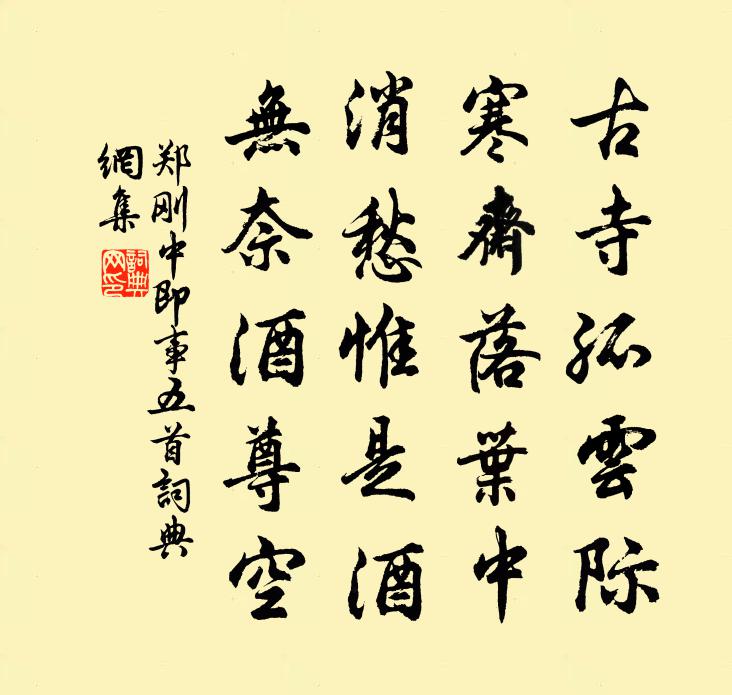 古寺孤雲际
寒齋落葉中
消愁惟是酒
無奈酒尊空
郑刚中即事五首詞典
網集
詞典
网印